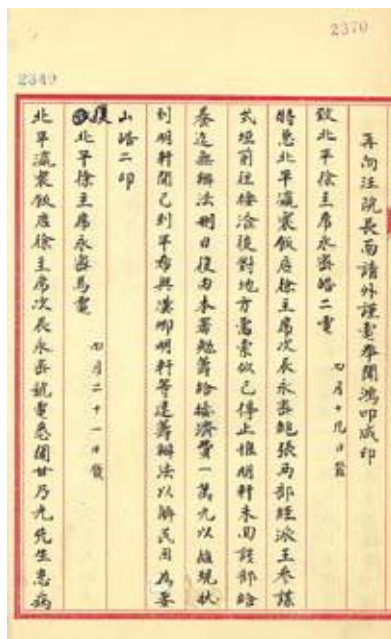 2370
2349
再向汪院長面請外謹電奉聞鴻叩咸印
致北平徐主席永密皓二電 四月十九日發
特急北平瀛寰飯店徐主席次辰永密鮑張两部經派王參謀
式垣前往接洽後對地方需索似已停止惟明軒未回該部給
養迄無辦法刪日復由本署勉籌給接濟費一萬元以維現狀
刻明軒聞已到平希與漢卿明軒等速籌辦法以解民困為要
山皓二印
復北平徐主席永密馬電 四月二十一日發
北平瀛寰飯店徐主席次辰永密號電悉聞廿乃允先生患病